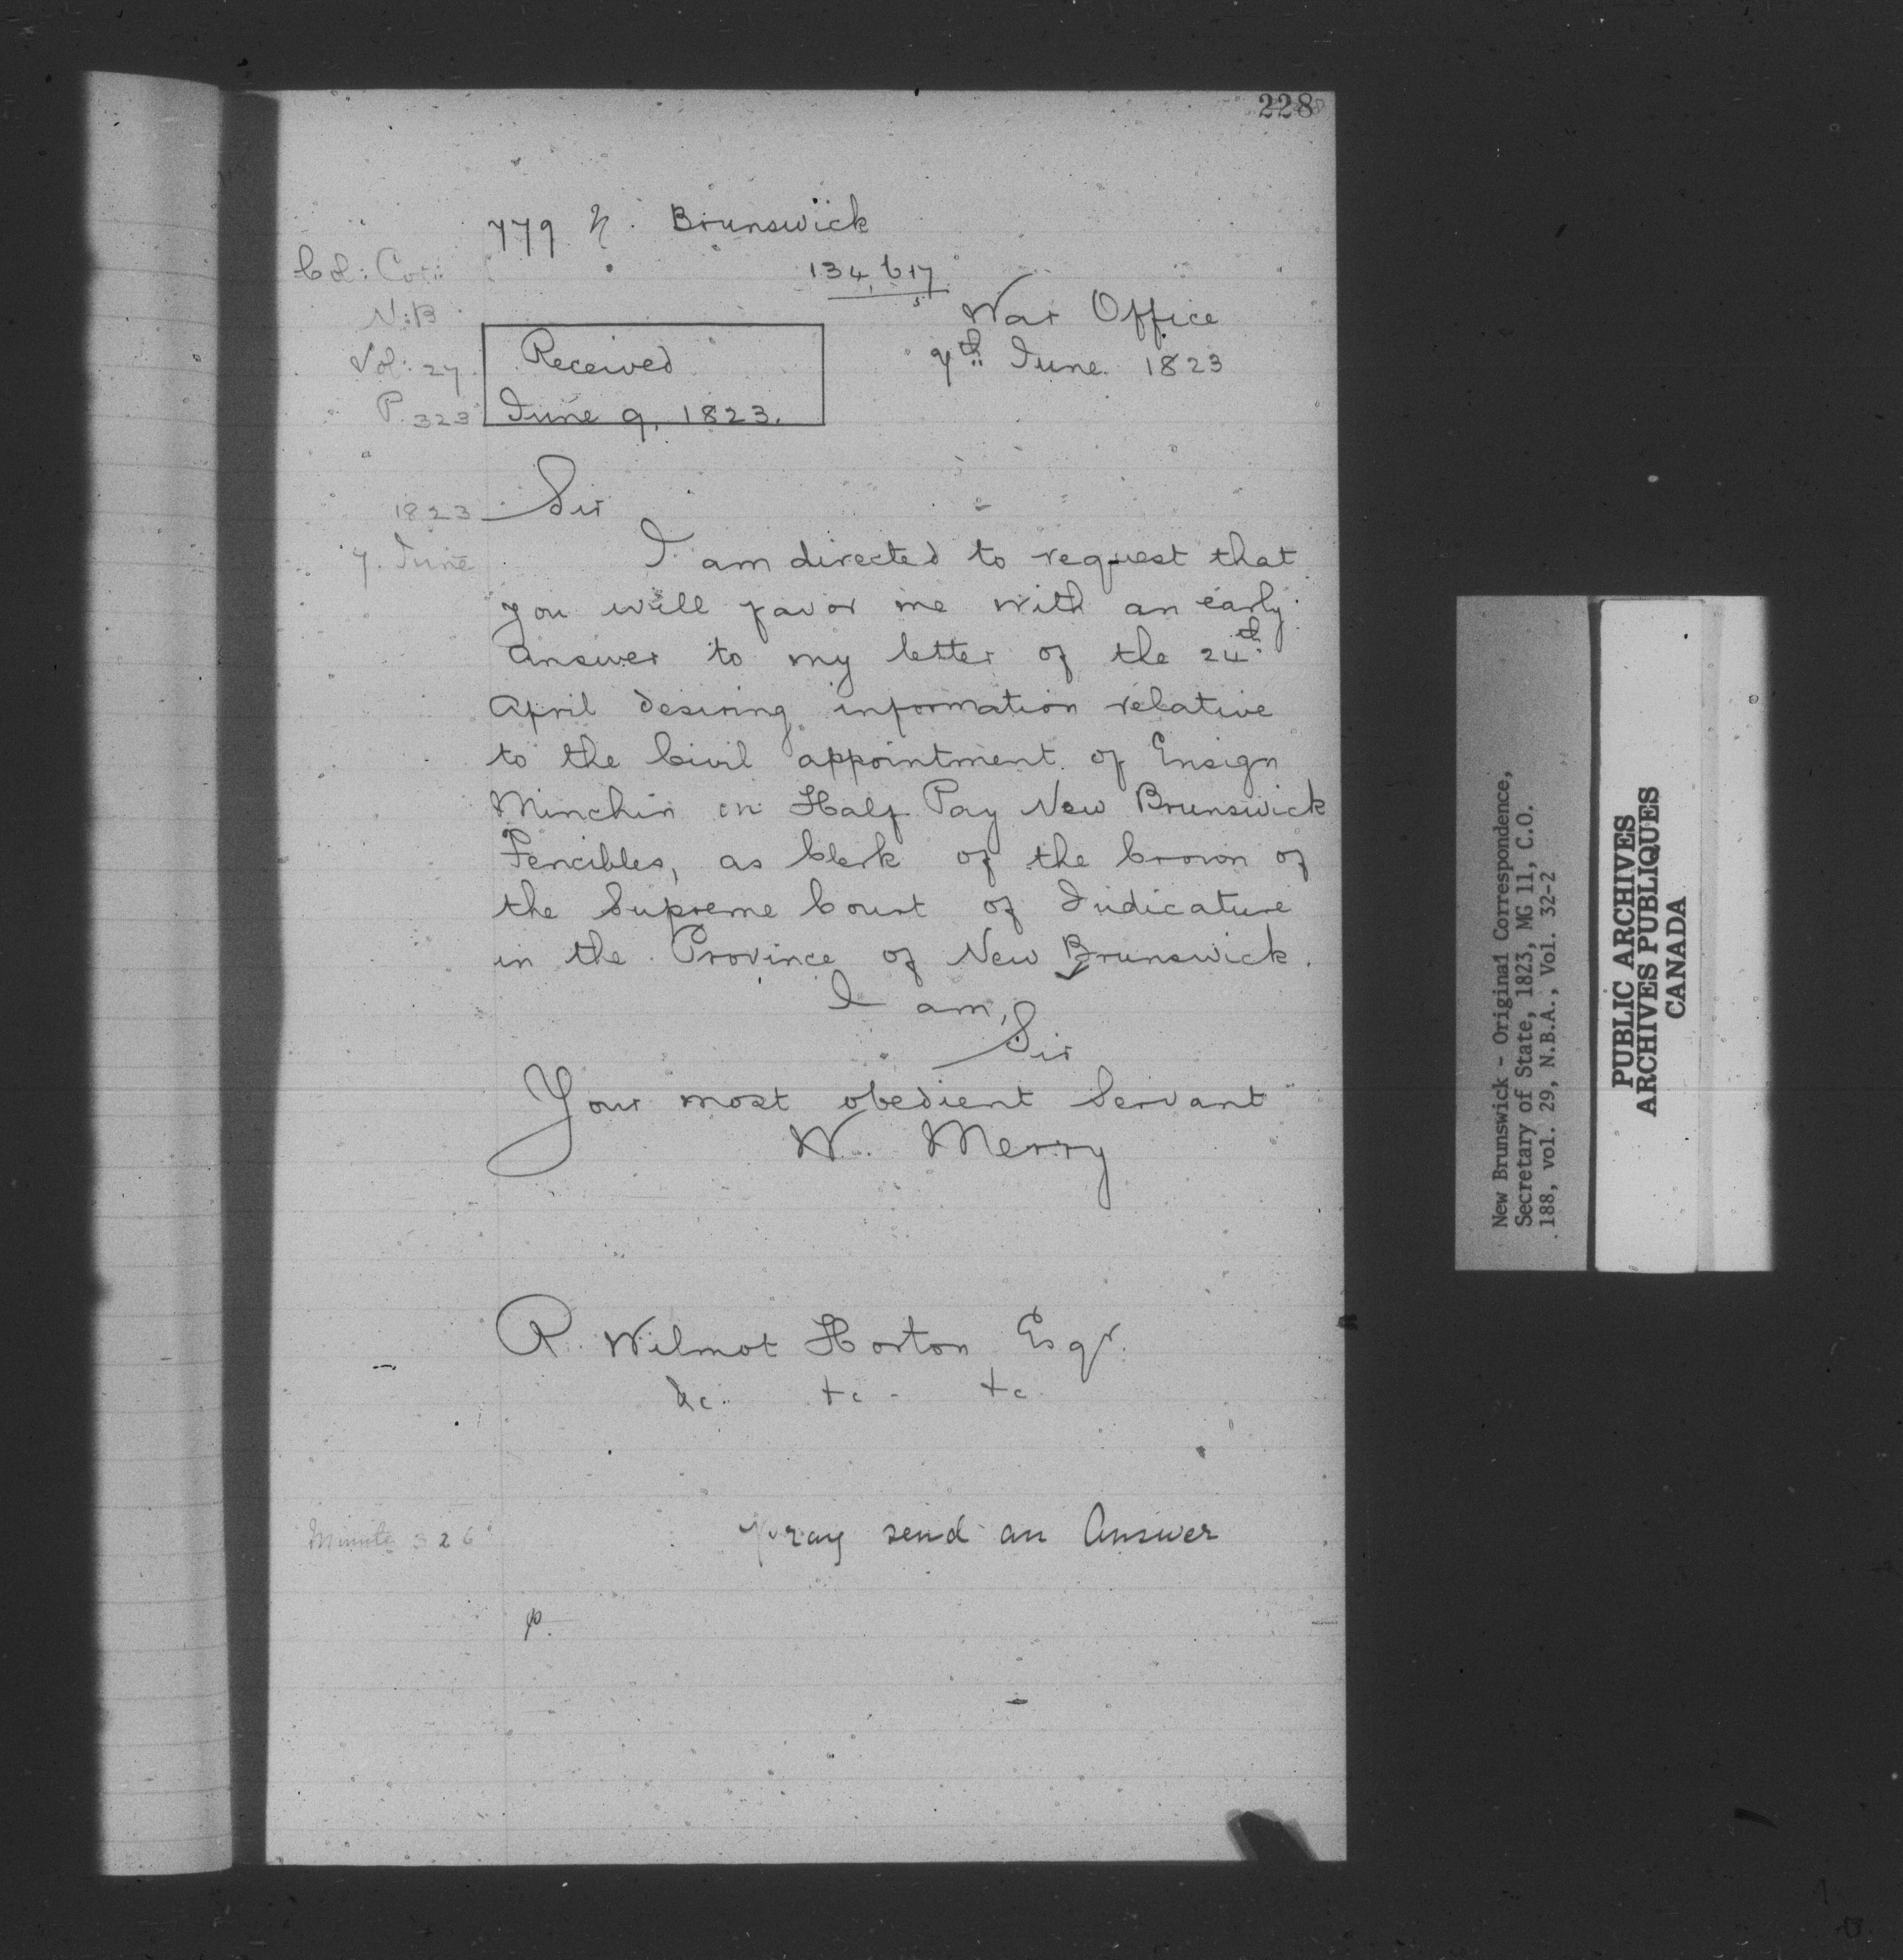 228
779 N. Brunswick
Col: Cor:
134,617
N:B
War Office
Vol: 27
Received
7th June 1823
P. 323
June 9, 1823.
1823
Sir
7. June
I am directed to request that
you will favor me with an early
answer to my letter of the 24th
April desiring information relative
to the Civil appointment of Ensign
Minchin on Half Pay New Brunswick
Fencibles, as Clerk of the Crown of
the Supreme Court of Judicature
in the Province of New Brunswick.
I am,
Sir
Your most obedient Servant
W. Merry
R. Wilmot Horton Esqr.
&c. &c. &c.
Minute 326
pray send an Answer
New Brunswick - Original Correspondence,
Secretary of State, 1823, MG 11, C.O.
188, vol. 29, N.B.A., Vol. 32-2
PUBLIC ARCHIVES
ARCHIVES PUBLIQUES
CANADA